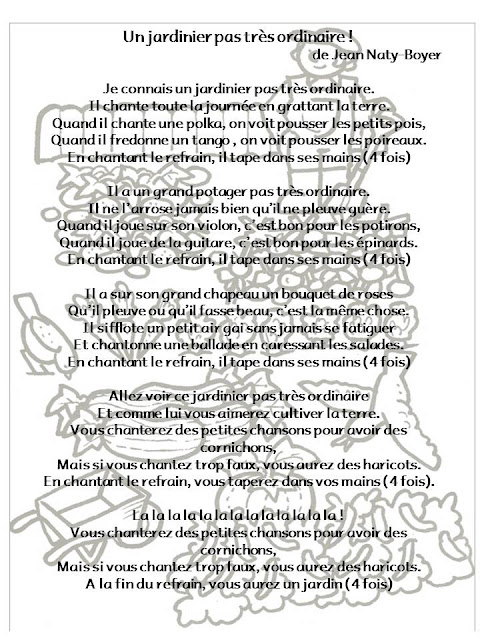 Un jardinier pas très ordinaire !
de Jean Naty-Boyer
Je connais un jardinier pas très ordinaire.
Il chante toute la journée en grattant la terre.
Quand il chante une polka, on voit pousser les petits pois,
Quand il fredonne un tango , on voit pousser les poireaux.
En chantant le refrain, il tape dans ses mains (4 fois)
Il a un grand potager pas très ordinaire.
Il ne l'arrose jamais bien qu'il ne pleuve guère.
Quand il joue sur son violon, c'est bon pour les potirons,
Quand il joue de la guitare, c'est bon pour les épinards.
En chantant le refrain, il tape dans ses mains (4 fois)
Il a sur son grand chapeau un bouquet de roses
Qu'il pleuve ou qu'il fasse beau, c'est la même chose.
Il sifflote un petit air gai sans jamais se fatiguer
Et chantonne une ballade en caressant les salades.
En chantant le refrain, il tape dans ses mains (4 fois)
Allez voir ce jardinier pas très ordinaire
Et comme lui vous aimerez cultiver la terre.
Vous chanterez des petites chansons pour avoir des
cornichons,
Mais si vous chantez trop faux, vous aurez des haricots.
En chantant le refrain, vous taperez dans vos mains (4 fois).
La la la la la la la la la la la la la !
Vous chanterez des petites chansons pour avoir des
cornichons,
Mais si vous chantez trop faux, vous aurez des haricots.
A la fin du refrain, vous aurez un jardin (4 fois)